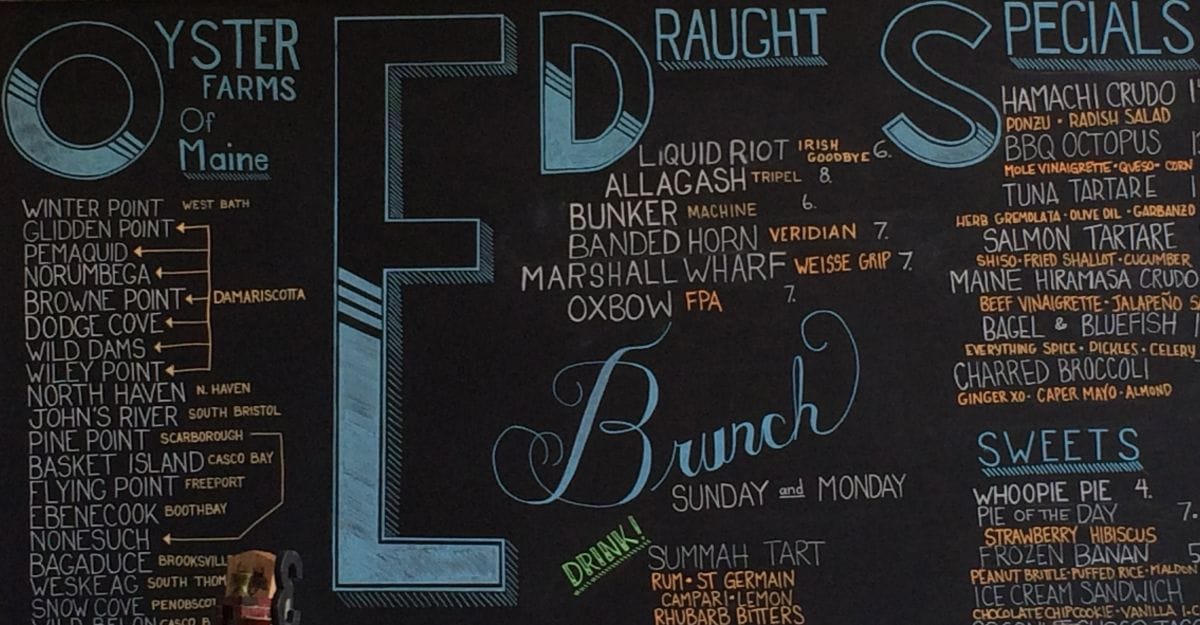 OYSTER
FARMS
Of
Maine
WINTER POINT WEST BATH
GLIDDEN POINT
PEMAQUID
NORUMBEGA
BROWNE POINT DAMARISCOTTA
DODGE COVE
WILD DAMS
WILEY POINT
NORTH HAVEN N. HAVEN
JOHN'S RIVER SOUTH BRISTOL
PINE POINT SCARBOROUGH
BASKET ISLAND CASCO BAY
FLYING POINT FREEPORT
EBENECOOK BOOTHBAY
NONESUCH
BAGADUCE BROOKSVILL
WESKEAG SOUTH THOM
SNOW COVE PENOBSCOT
WILD BELON CASCO B
E
DRAUGHT
LIQUID RIOT IRISH GOODBYE 6.
ALLAGASH TRIPEL 8.
BUNKER MACHINE 6.
BANDED HORN VERIDIAN 7.
MARSHALL WHARF WEISSE GRIP 7.
OXBOW FPA 7.
Brunch
SUNDAY and MONDAY
DRINK!
SUMMAH TART
RUM • ST GERMAIN
CAMPARI • LEMON
RHUBARB BITTERS
SPECIALS
HAMACHI CRUDO
PONZU • RADISH SALAD
BBQ OCTOPUS
MOLE VINAIGRETTE • QUESO • CORN
TUNA TARTARE
HERB GREMOLATA • OLIVE OIL • GARBANZO
SALMON TARTARE
SHISO • FRIED SHALLOT • CUCUMBER
MAINE HIRAMASA CRUDO
BEEF VINAIGRETTE • JALAPEÑO
BAGEL & BLUEFISH
EVERYTHING SPICE • PICKLES • CELERY
CHARRED BROCCOLI
GINGER XO • CAPER MAYO • ALMOND
SWEETS
WHOOPIE PIE 4.
PIE OF THE DAY 7.
STRAWBERRY HIBISCUS
FROZEN BANAN
PEANUT BRITTLE • PUFFED RICE • MALDON
ICE CREAM SANDWICH
CHOCOLATE CHIP COOKIE • VANILLA